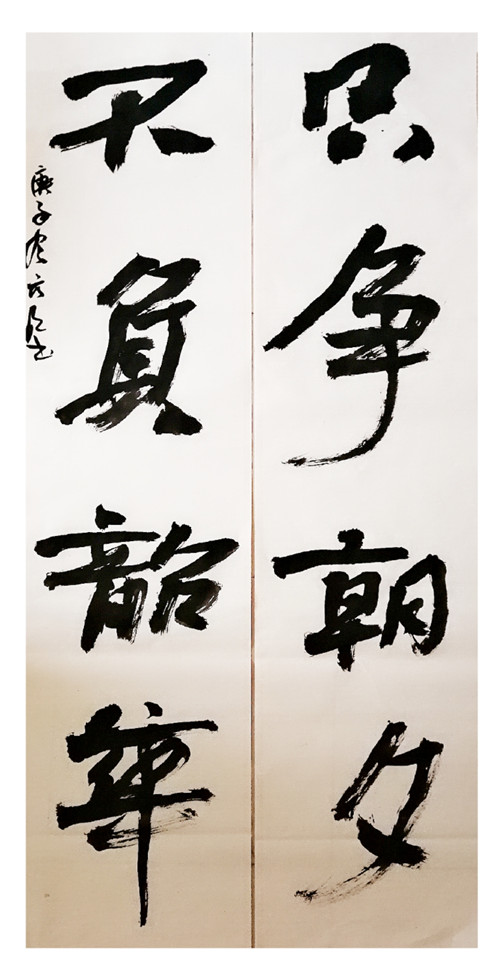 只争朝夕
不负韶华
庚子冬 书